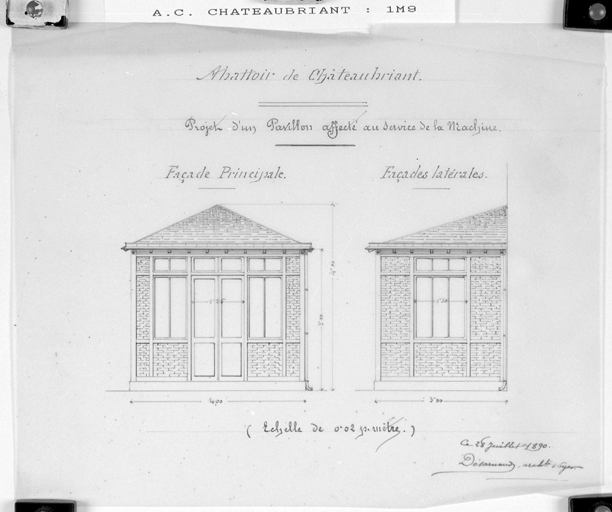 A.C. CHATEAUBRIANT : 1M9
Abattoir de Châteaubriant.
Projet d'un Pavillon affecté au Service de la Machine.
Façade Principale.
Façades latérales.
4,00
3,00
(Echelle de 0.02 p. mètre.)
Ce 28 Juillet 1890.